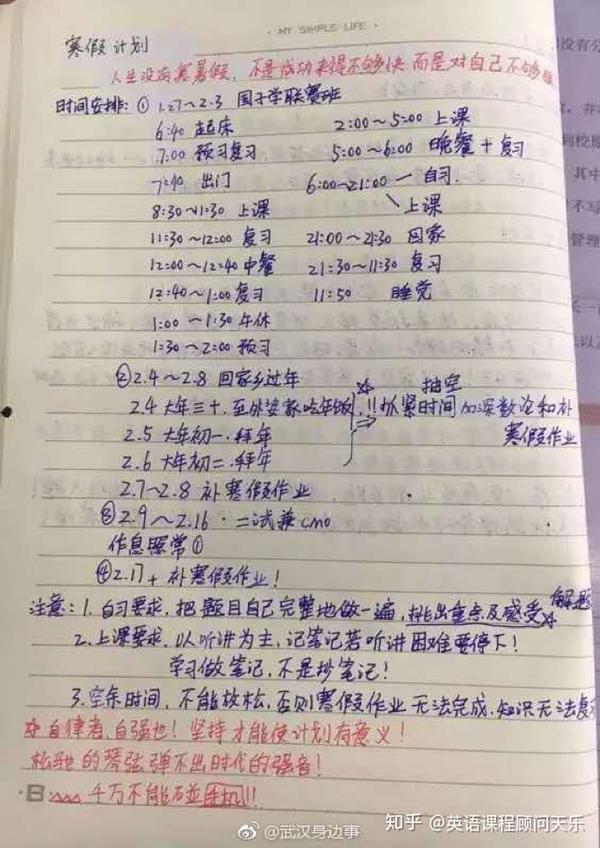 · MY SIMPLE LIFE ·
寒假计划
人生没有寒暑假，不是成功来得不够快，而是对自己不够狠
时间安排：① 1.27～2.3 国子学联赛班
6:40 起床 2:00～5:00 上课
7:00 预习复习 5:00～6:00 晚餐+复习
7:40 出门 6:00～21:00 自习.
8:30～11:30 上课 上课
11:30～12:00 复习 21:00～21:30 回家
12:00～12:40 中餐 21:30～11:30 复习
12:40～1:00 复习 11:50 睡觉
1:00～1:30 午休
1:30～2:00 预习
② 2.4～2.8 回家乡过年 抽空
2.4 大年三十.至外婆家吃年饭 !!抓紧时间加深数论和补
2.5 大年初一.拜年 寒假作业
2.6 大年初二.拜年
2.7～2.8 补寒假作业
③ 2.9～2.16 · 二试兼CMO
作息照常①
④ 2.17+ 补寒假作业！
注意：1.自习要求，把题目自己完整地做一遍，挑出重点及感受☆解题
2.上课要求，以听讲为主，记笔记若听讲困难要停下！
学习做笔记，不是抄笔记！
3.空余时间，不能放松，否则寒假作业无法完成，知识无法复
☆自律者，自强也！坚持才能使计划有意义！
松驰的琴弦弹不出时代的强音！
千万不能碰手机!!!
@武汉身边事
知乎 @英语课程顾问天乐